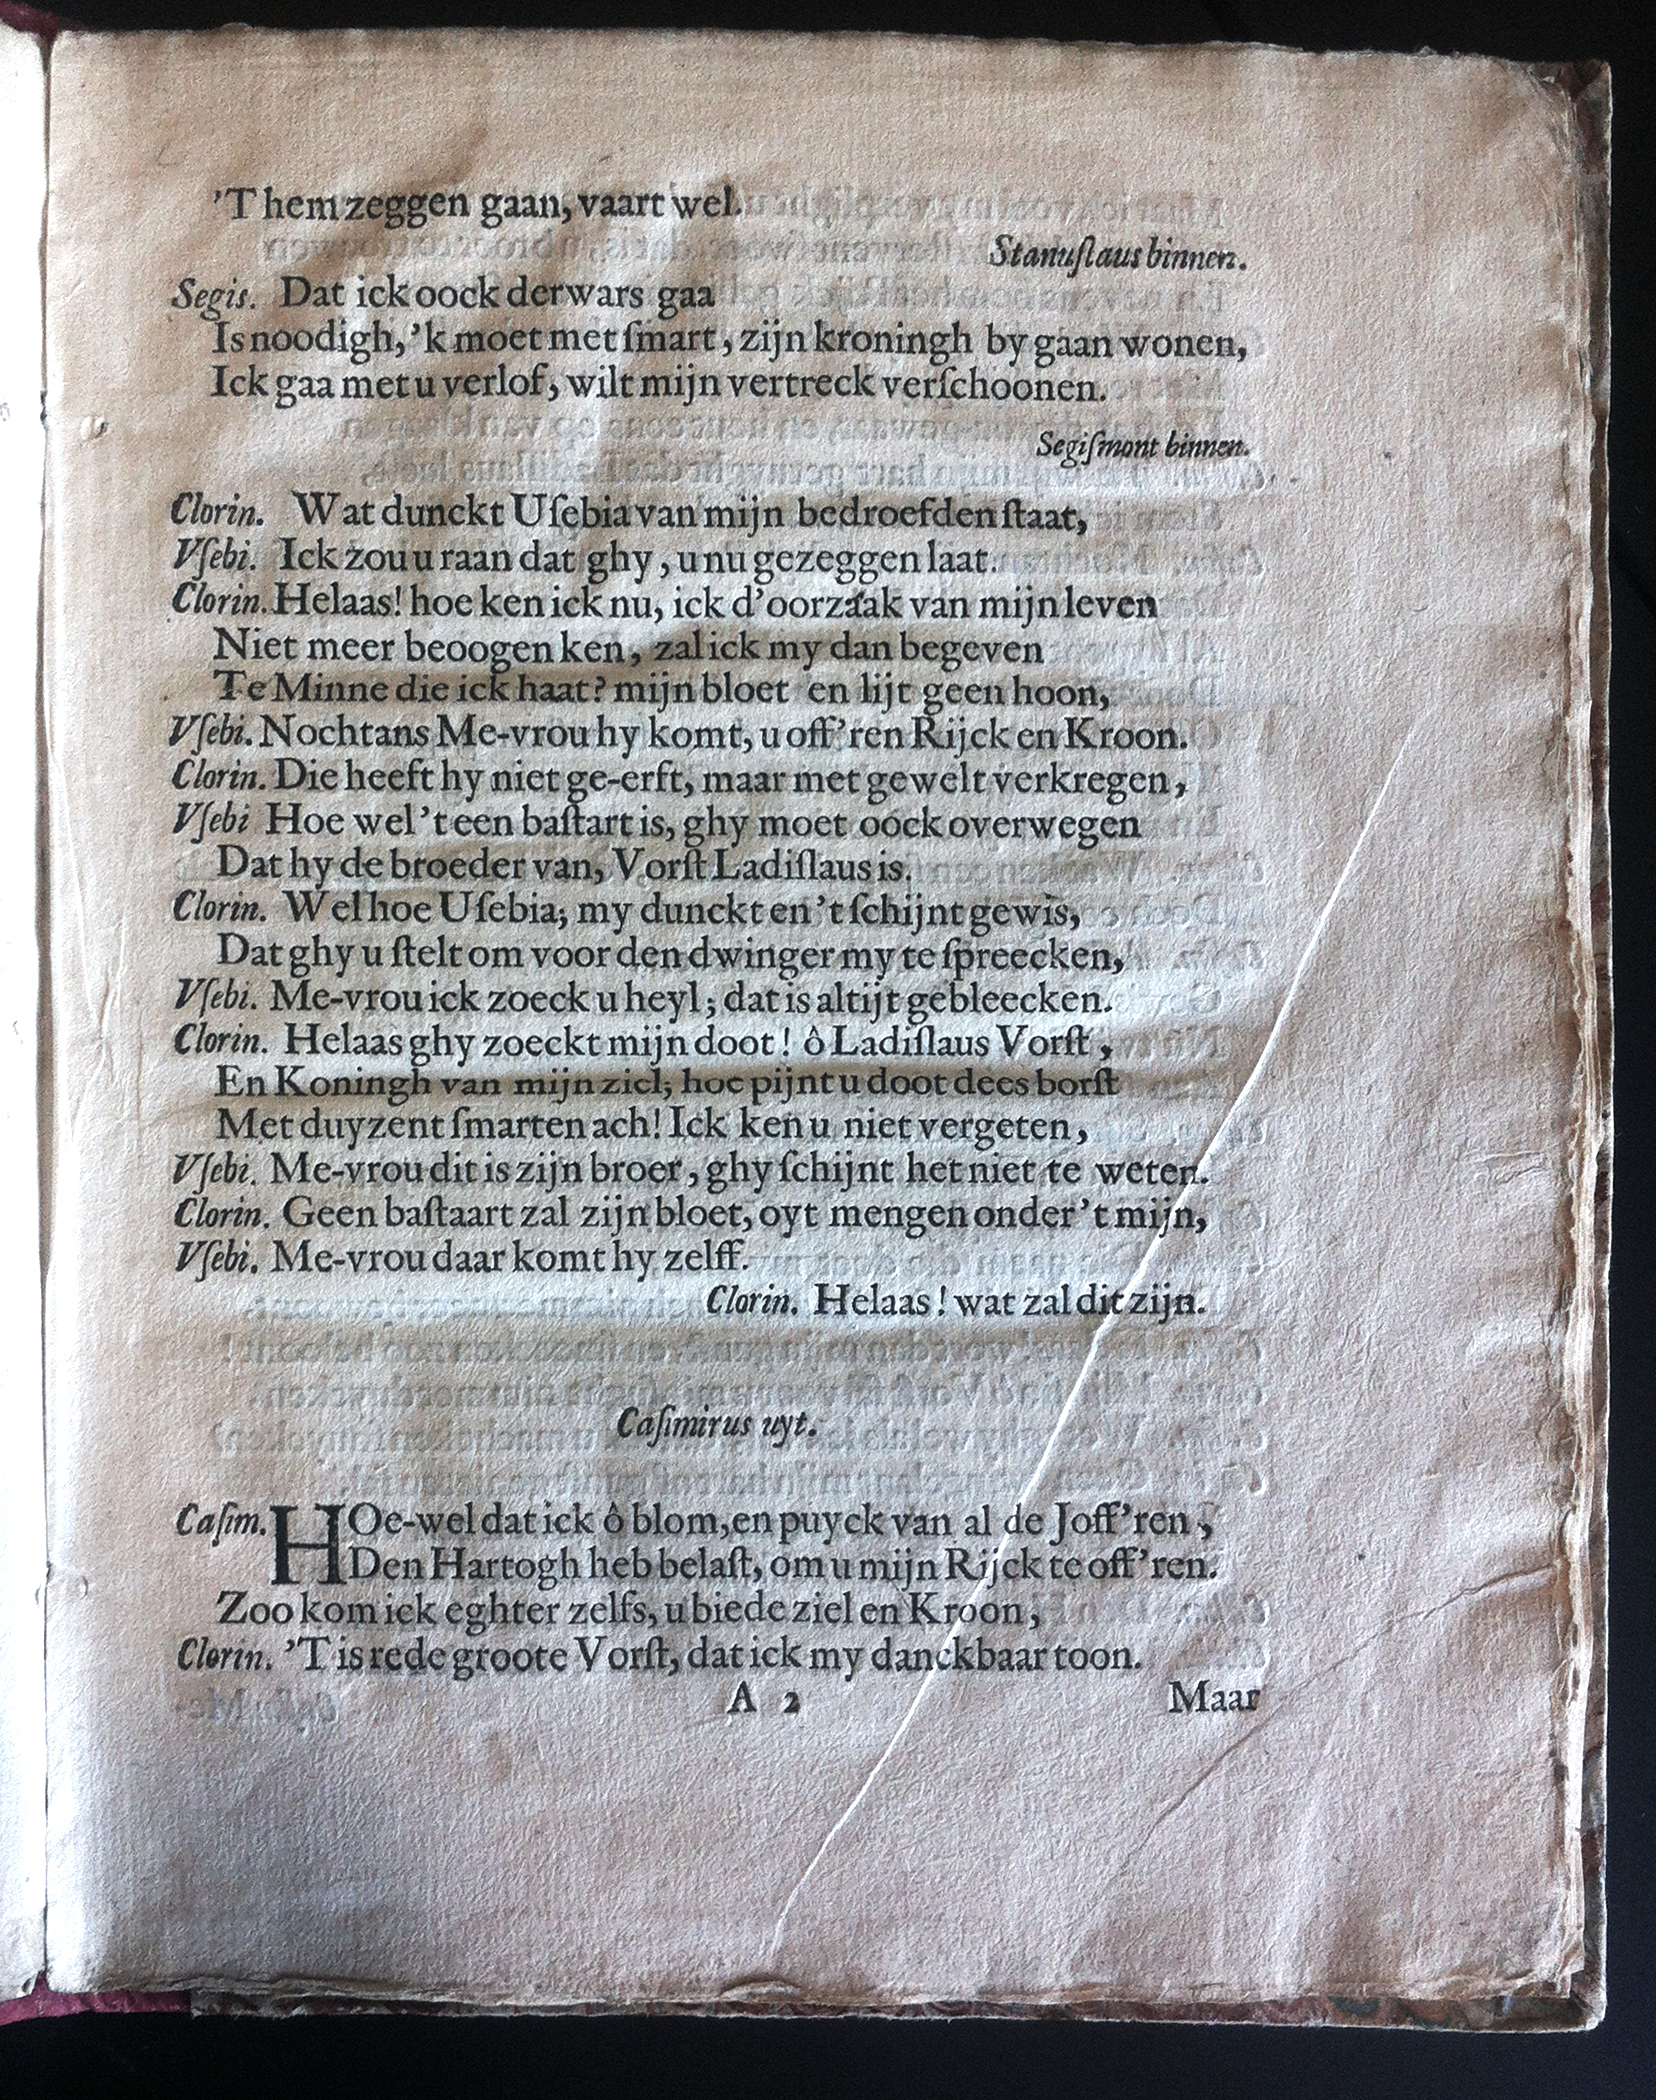 'T hem zeggen gaan, vaart wel.
Stanuſlaus binnen.
Segis. Dat ick oock derwars gaa
Is noodigh, 'k moet met ſmart, zijn kroningh by gaan wonen,
Ick gaa met u verlof, wilt mijn vertreck verſchoonen.
Segiſmont binnen.
Clorin. Wat dunckt Uſebia van mijn bedroefden ſtaat,
Vſebi. Ick zou u raan dat ghy, u nu gezeggen laat.
Clorin. Helaas! hoe ken ick nu, ick d'oorzaak van mijn leven
Niet meer beoogen ken, zal ick my dan begeven
Te Minne die ick haat? mijn bloet en lijt geen hoon,
Vſebi. Nochtans Me-vrou hy komt, u off'ren Rijck en Kroon.
Clorin. Die heeft hy niet ge-erft, maar met gewelt verkregen,
Vſebi Hoe wel 't een baſtart is, ghy moet oock overwegen
Dat hy de broeder van, Vorſt Ladiſlaus is.
Clorin. Wel hoe Uſebia; my dunckt en 't ſchijnt gewis,
Dat ghy u ſtelt om voor den dwinger my te ſpreecken,
Vſebi. Me-vrou ick zoeck u heyl; dat is altijt gebleecken.
Clorin. Helaas ghy zoeckt mijn doot! ô Ladiſlaus Vorſt,
En Koningh van mijn ziel; hoe pijnt u doot dees borſt
Met duyzent ſmarten ach! Ick ken u niet vergeten,
Vſebi. Me-vrou dit is zijn broer, ghy ſchijnt het niet te weten.
Clorin. Geen baſtaart zal zijn bloet, oyt mengen onder 't mijn,
Vſebi. Me-vrou daar komt hy zelff.
Clorin. Helaas! wat zal dit zijn.
Caſimirus uyt.
Caſim. HOe-wel dat ick ô blom, en puyck van al de Joff'ren,
Den Hartogh heb belaſt, om u mijn Rijck te off'ren.
Zoo kom ick eghter zelfs, u biede ziel en Kroon,
Clorin. 'T is rede groote Vorſt, dat ick my danckbaar toon.
A 2 Maar